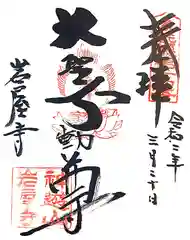 奉拝
令和二年
三月二十日
大聖不動尊
岩屋寺